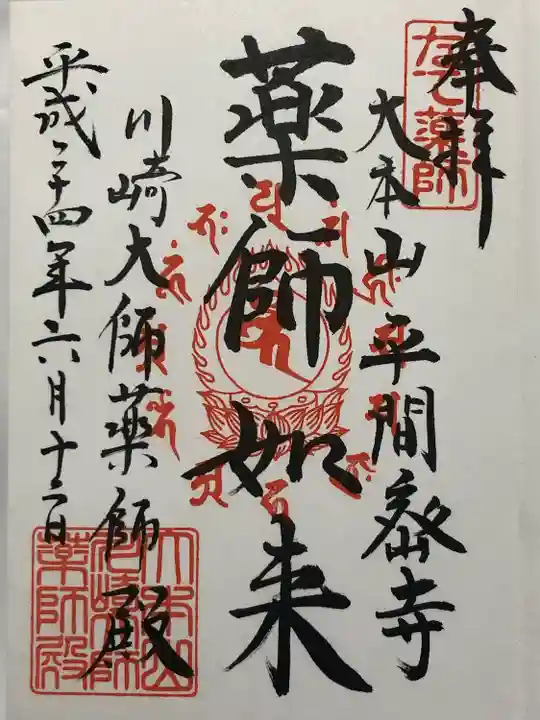 奉拝
大本山平間寺
薬師如来
川崎大師薬師殿
平成二十四年六月十二日
なで薬師
大本山
川崎大師
薬師殿